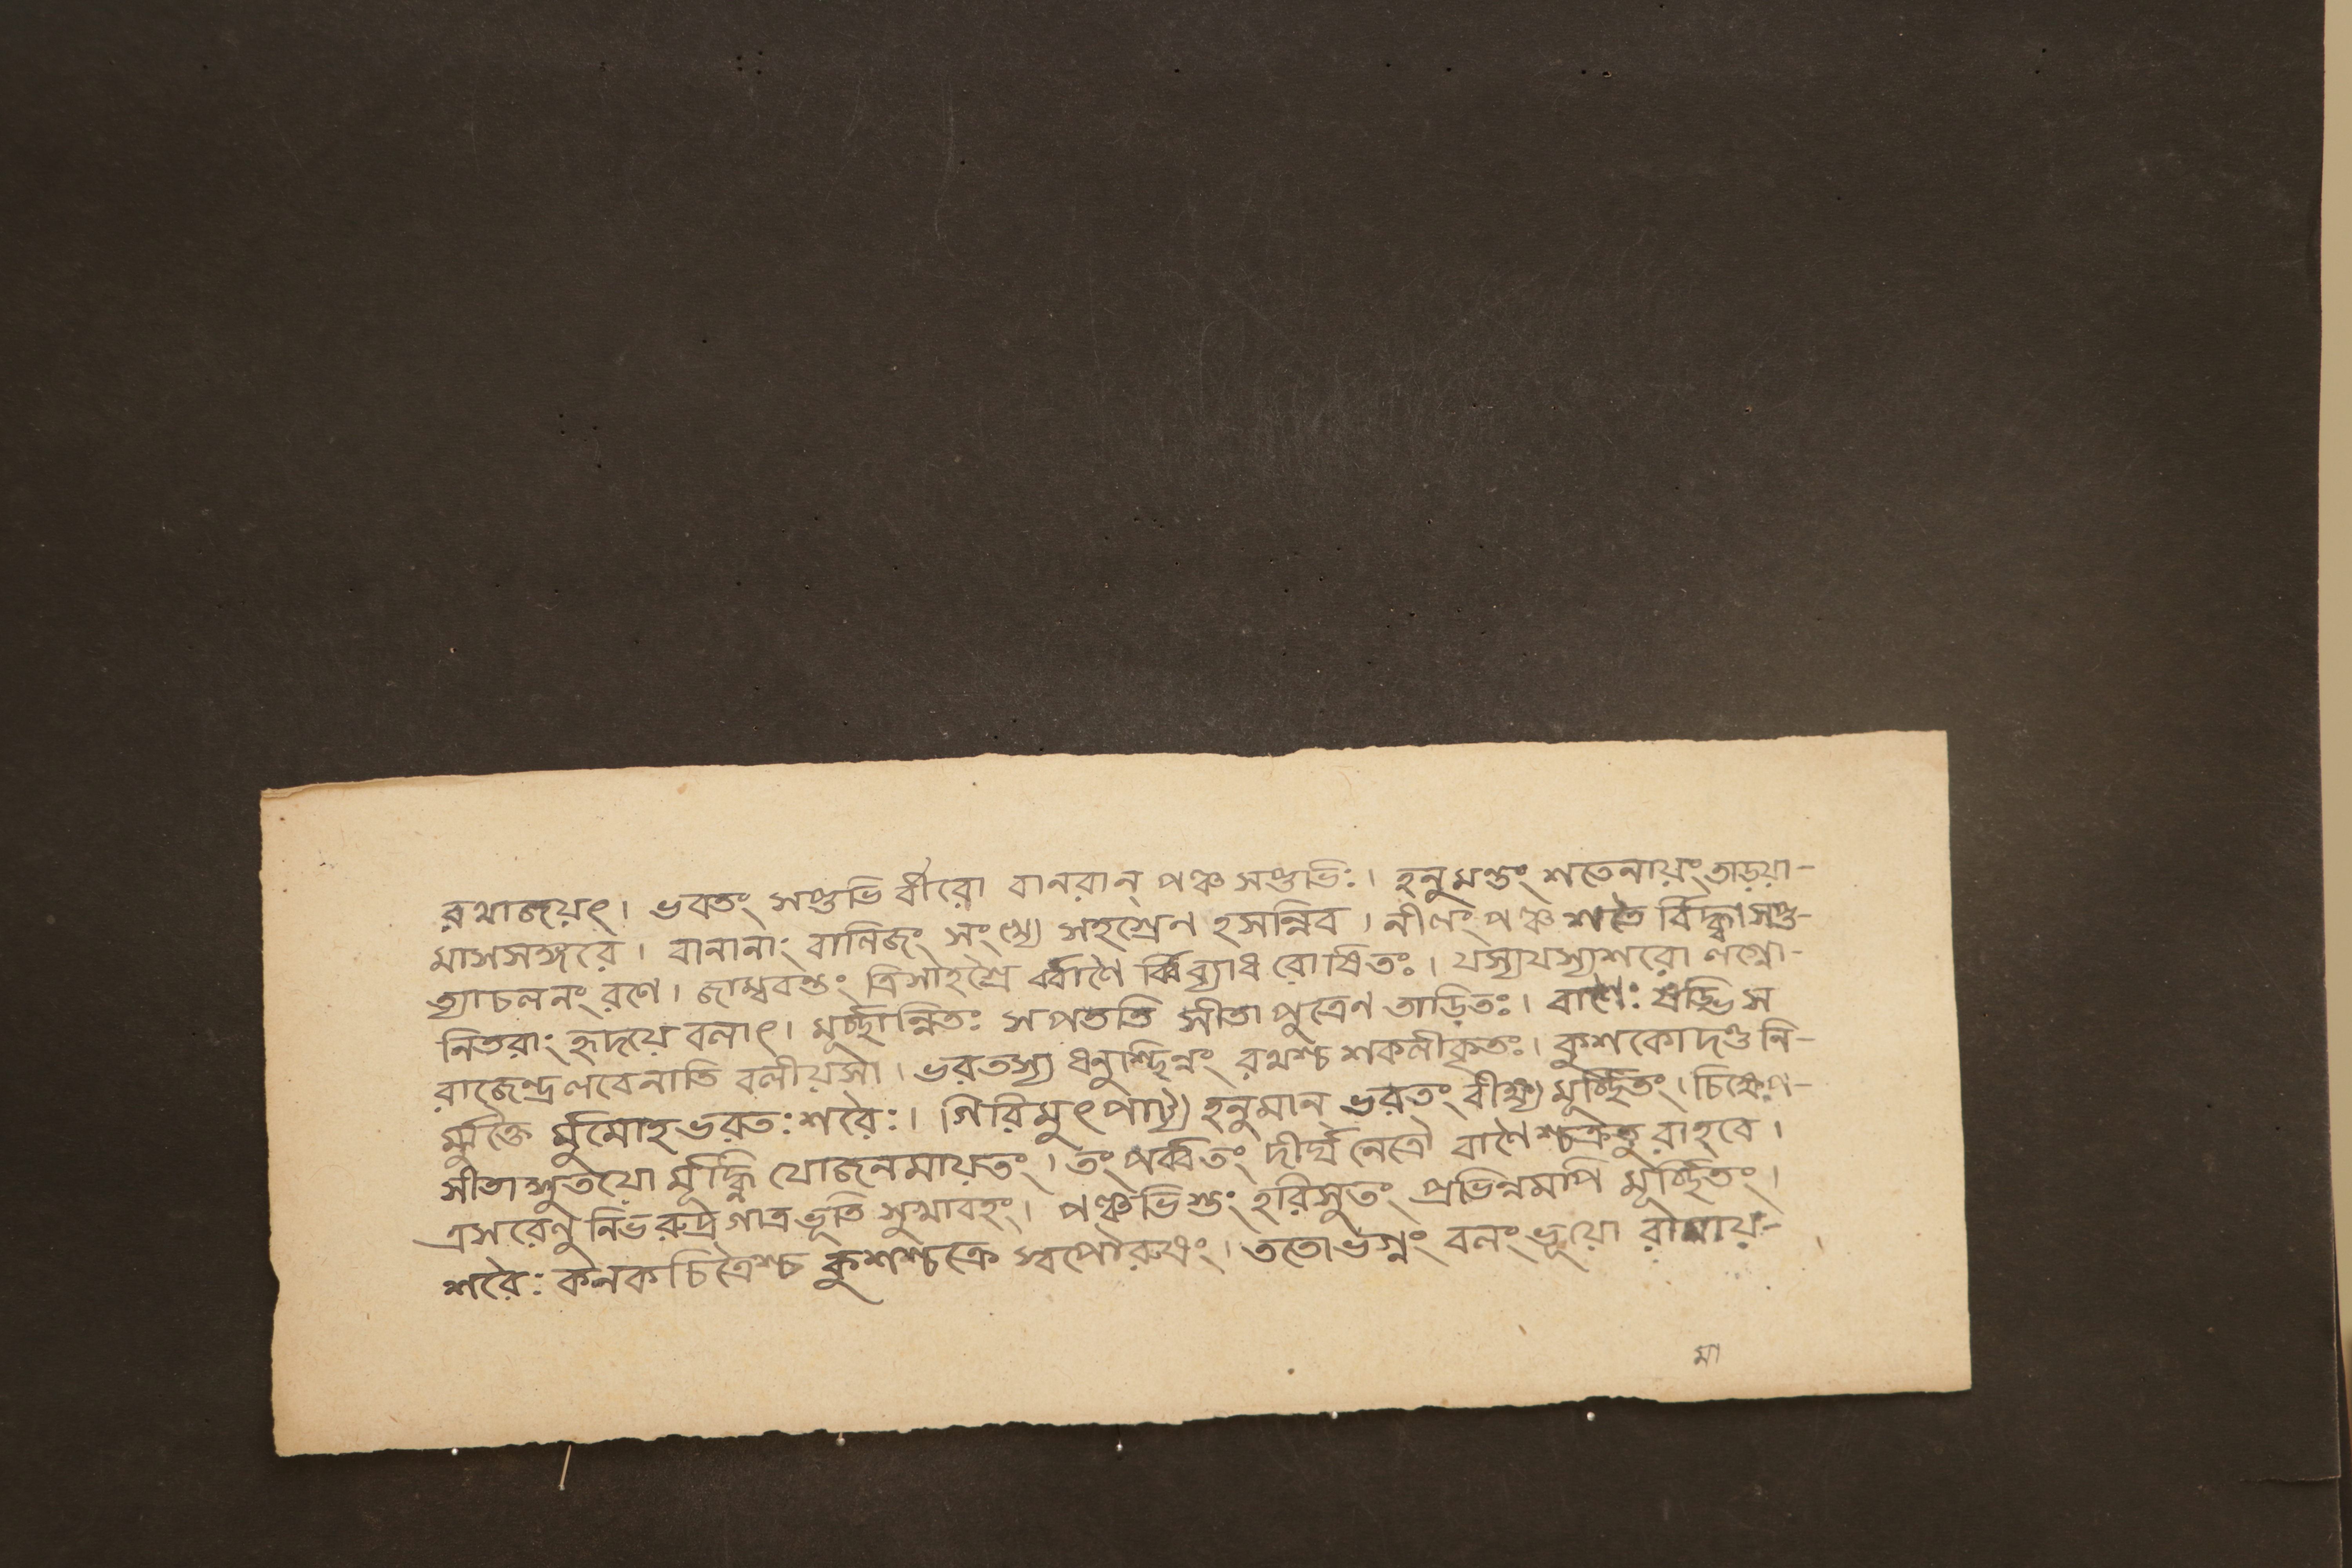 রথাজয়ৎ। ভবতং সপ্তভি র্বীরো বানরান্ পঞ্চ সপ্তভিঃ। হনুমন্তং শতেনায়ং তাড়য়া-
মাসসঙ্গরে। বানানাং বানিজং সংখ্যে সহশ্রেন হসন্নিব। নীলং পঞ্চ শতৈ র্বিদ্ধ্বা সপ্ত-
ত্যাচলনং রণে। জাম্ববন্তং ত্রিসাহশ্রৈ র্ব্বাণৈ র্ব্বিব্যাধ রোষিতঃ। যস্যযস্যশরো লগ্নো-
নিতরাং হৃদয়ে বলাৎ। মূর্চ্ছান্নিতঃ সপততি সীতা পুত্রেণ তাড়িতঃ। বাণৈঃ ষড্ভি স
রাজেন্দ্র লবেনাতি বলীয়সা। ভরতস্য ধনুশ্ছিন্নং রথশ্চ শকলীকৃতঃ। কুশকোদণ্ড নি-
র্ম্মুক্তৈ র্মুমোহ ভরতঃ শরৈঃ। গিরিমুৎপাট্য হনুমান্ ভরতং বীক্ষ্য মূর্চ্ছিতং। চিক্ষেপ-
সীতাসুতয়ো র্মূর্দ্ধ্নি যোজনমায়তং। তং পর্ব্বতং দীর্ঘ নেত্রৌ বাণৈশ্চক্রতু রাহবে।
ত্রসরেণু নিভরুদ্র গাত্র ভূতি সুখাবহং। পঞ্চভিস্তং হরিসুতং প্রভিন্নমপি মূর্চ্ছিতং।
শরৈঃ কনকচিত্রৈশ্চ কুশশ্চক্রে স্বপৌরুষং। ততোভগ্নং বলং ভূয়ো রামায়-
মা